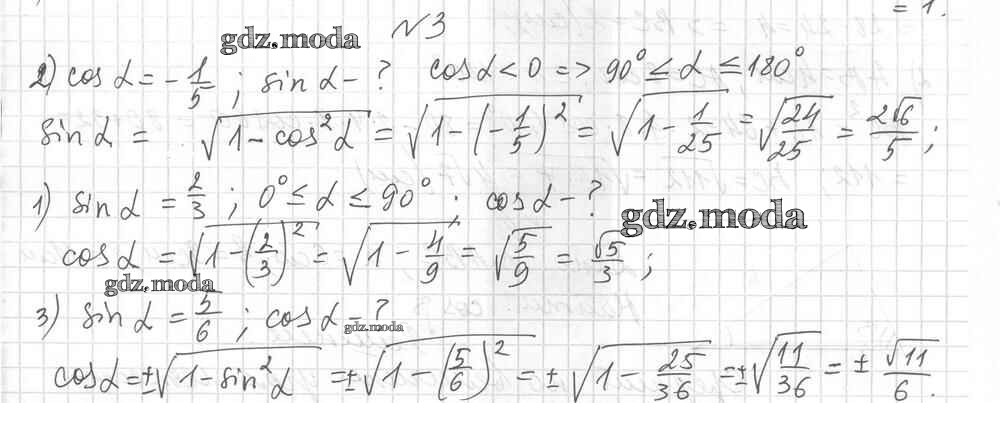 = 1.
№3
gdz.moda
2) cos α = - 1/5 ; sin α - ? cos α < 0 => 90° ≤ α ≤ 180°
sin α = √(1 - cos² α) = √(1 - (-1/5)²) = √(1 - 1/25) = √(24/25) = 2√6/5 ;
1) sin α = 2/3 ; 0° ≤ α ≤ 90° ; cos α - ?
gdz.moda
cos α = √(1 - (2/3)²) = √(1 - 4/9) = √(5/9) = √5/3 ;
gdz.moda
3) sin α = 5/6 ; cos α - ?
gdz.moda
cos α = ±√(1 - sin² α) = ±√(1 - (5/6)²) = ±√(1 - 25/36) = ±√(11/36) = ± √11/6 .